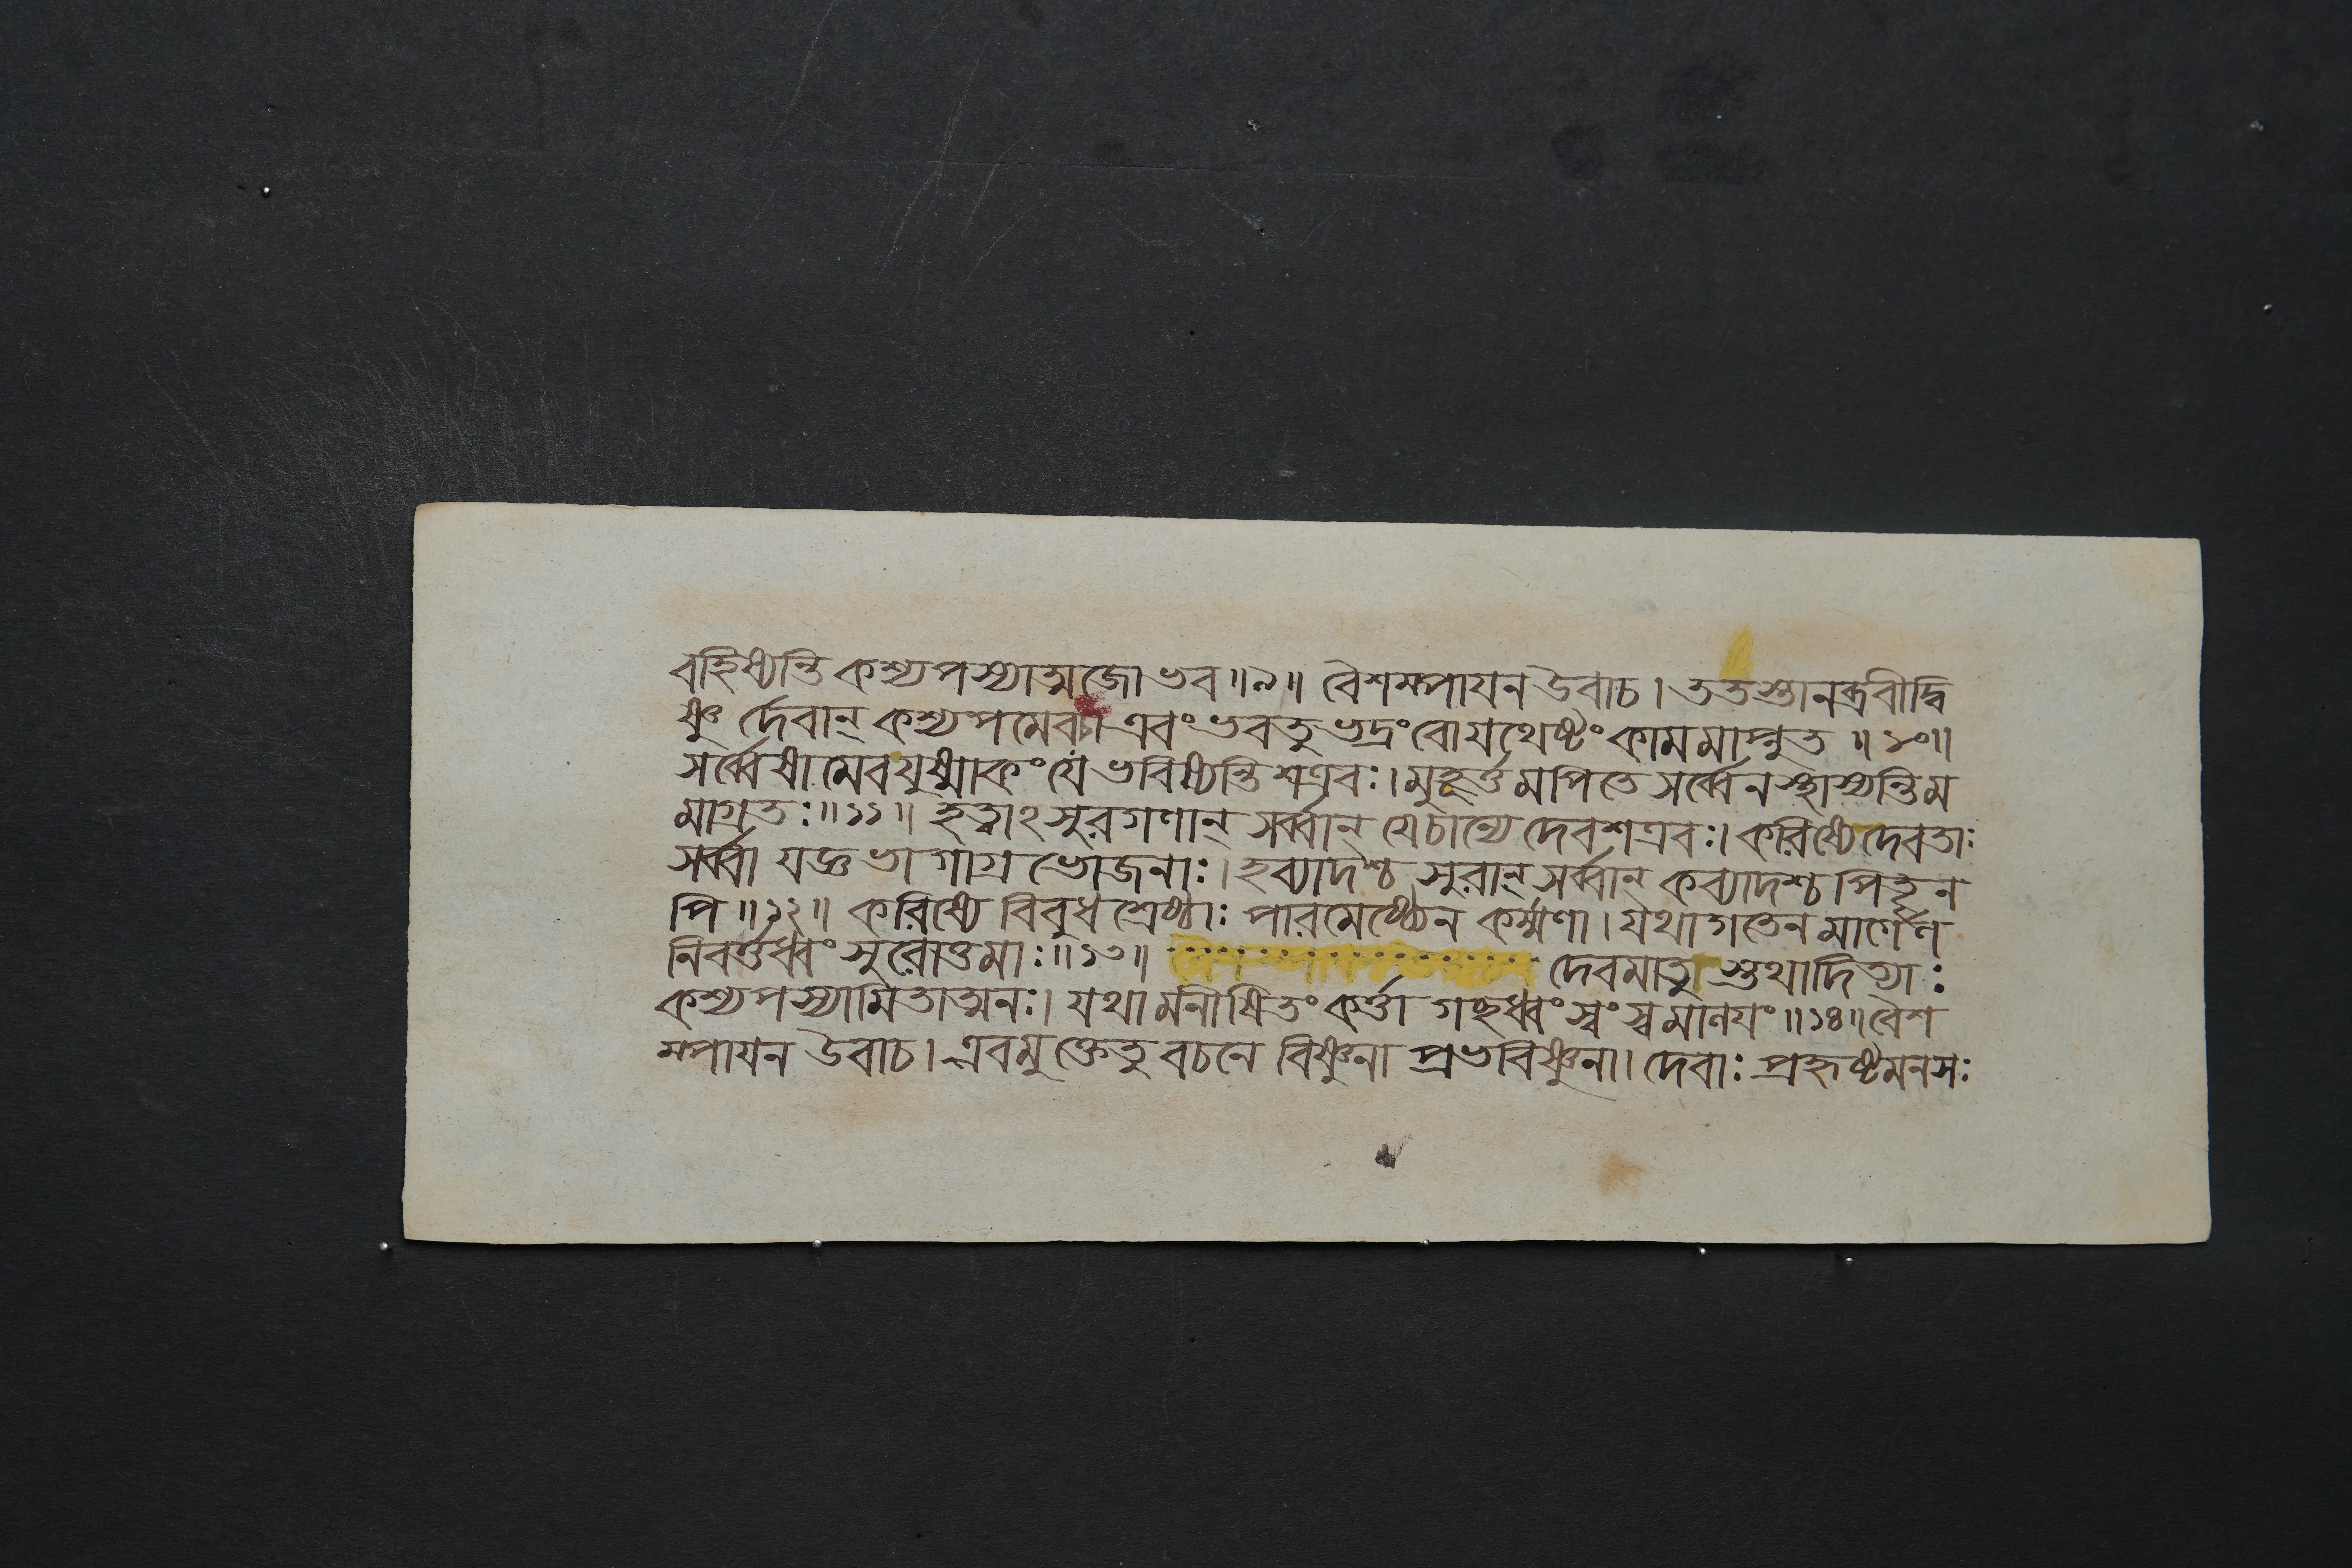 বহিষ্যন্তি কশ্যপস্যাত্মজো ভব ॥৯॥ বৈশম্পায়ন উবাচ । ততস্তানব্রবীদ্বি
ষ্ণু র্দেবান্ কশ্যপমেবচ। এবং ভবতু ভদ্রং বো যথেষ্টং কামমাপ্নুত ॥১০॥
সর্ব্বেষামেব যুষ্মাকং যে ভবিষ্যন্তি শত্রবঃ। মুহূর্ত্তমপিতে সর্ব্বে ন স্থাস্যন্তি ম
মাগ্রতঃ ॥১১॥ হত্বাঽসুরগণান্ সর্ব্বান্ যেচান্যে দেবশত্রবঃ। করিষ্যে দেবতাঃ
সর্ব্বা যজ্ঞভাগাগ্রভোজনাঃ। হব্যাদশ্চ সুরান্ সর্ব্বান্ কব্যাদশ্চ পিতৄন
পি ॥১২॥ করিষ্যে বিবুধশ্রেষ্ঠাঃ পারমেষ্ঠ্যেন কর্ম্মণা। যথাগতেন মার্গেণ
নিবর্ত্তধ্বং সুরোত্তমাঃ ॥১৩॥ দেবমাতু স্তথাদিত্যাঃ
কশ্যপস্যামিতাত্মনঃ। যথামনীষিতং কর্ত্তা গচ্ছধ্বং স্বং স্বমালয়ং ॥১৪॥ বৈশ
ম্পায়ন উবাচ। এবমুক্তেতু বচনে বিষ্ণুনা প্রভবিষ্ণুনা। দেবাঃ প্রহৃষ্টমনসঃ